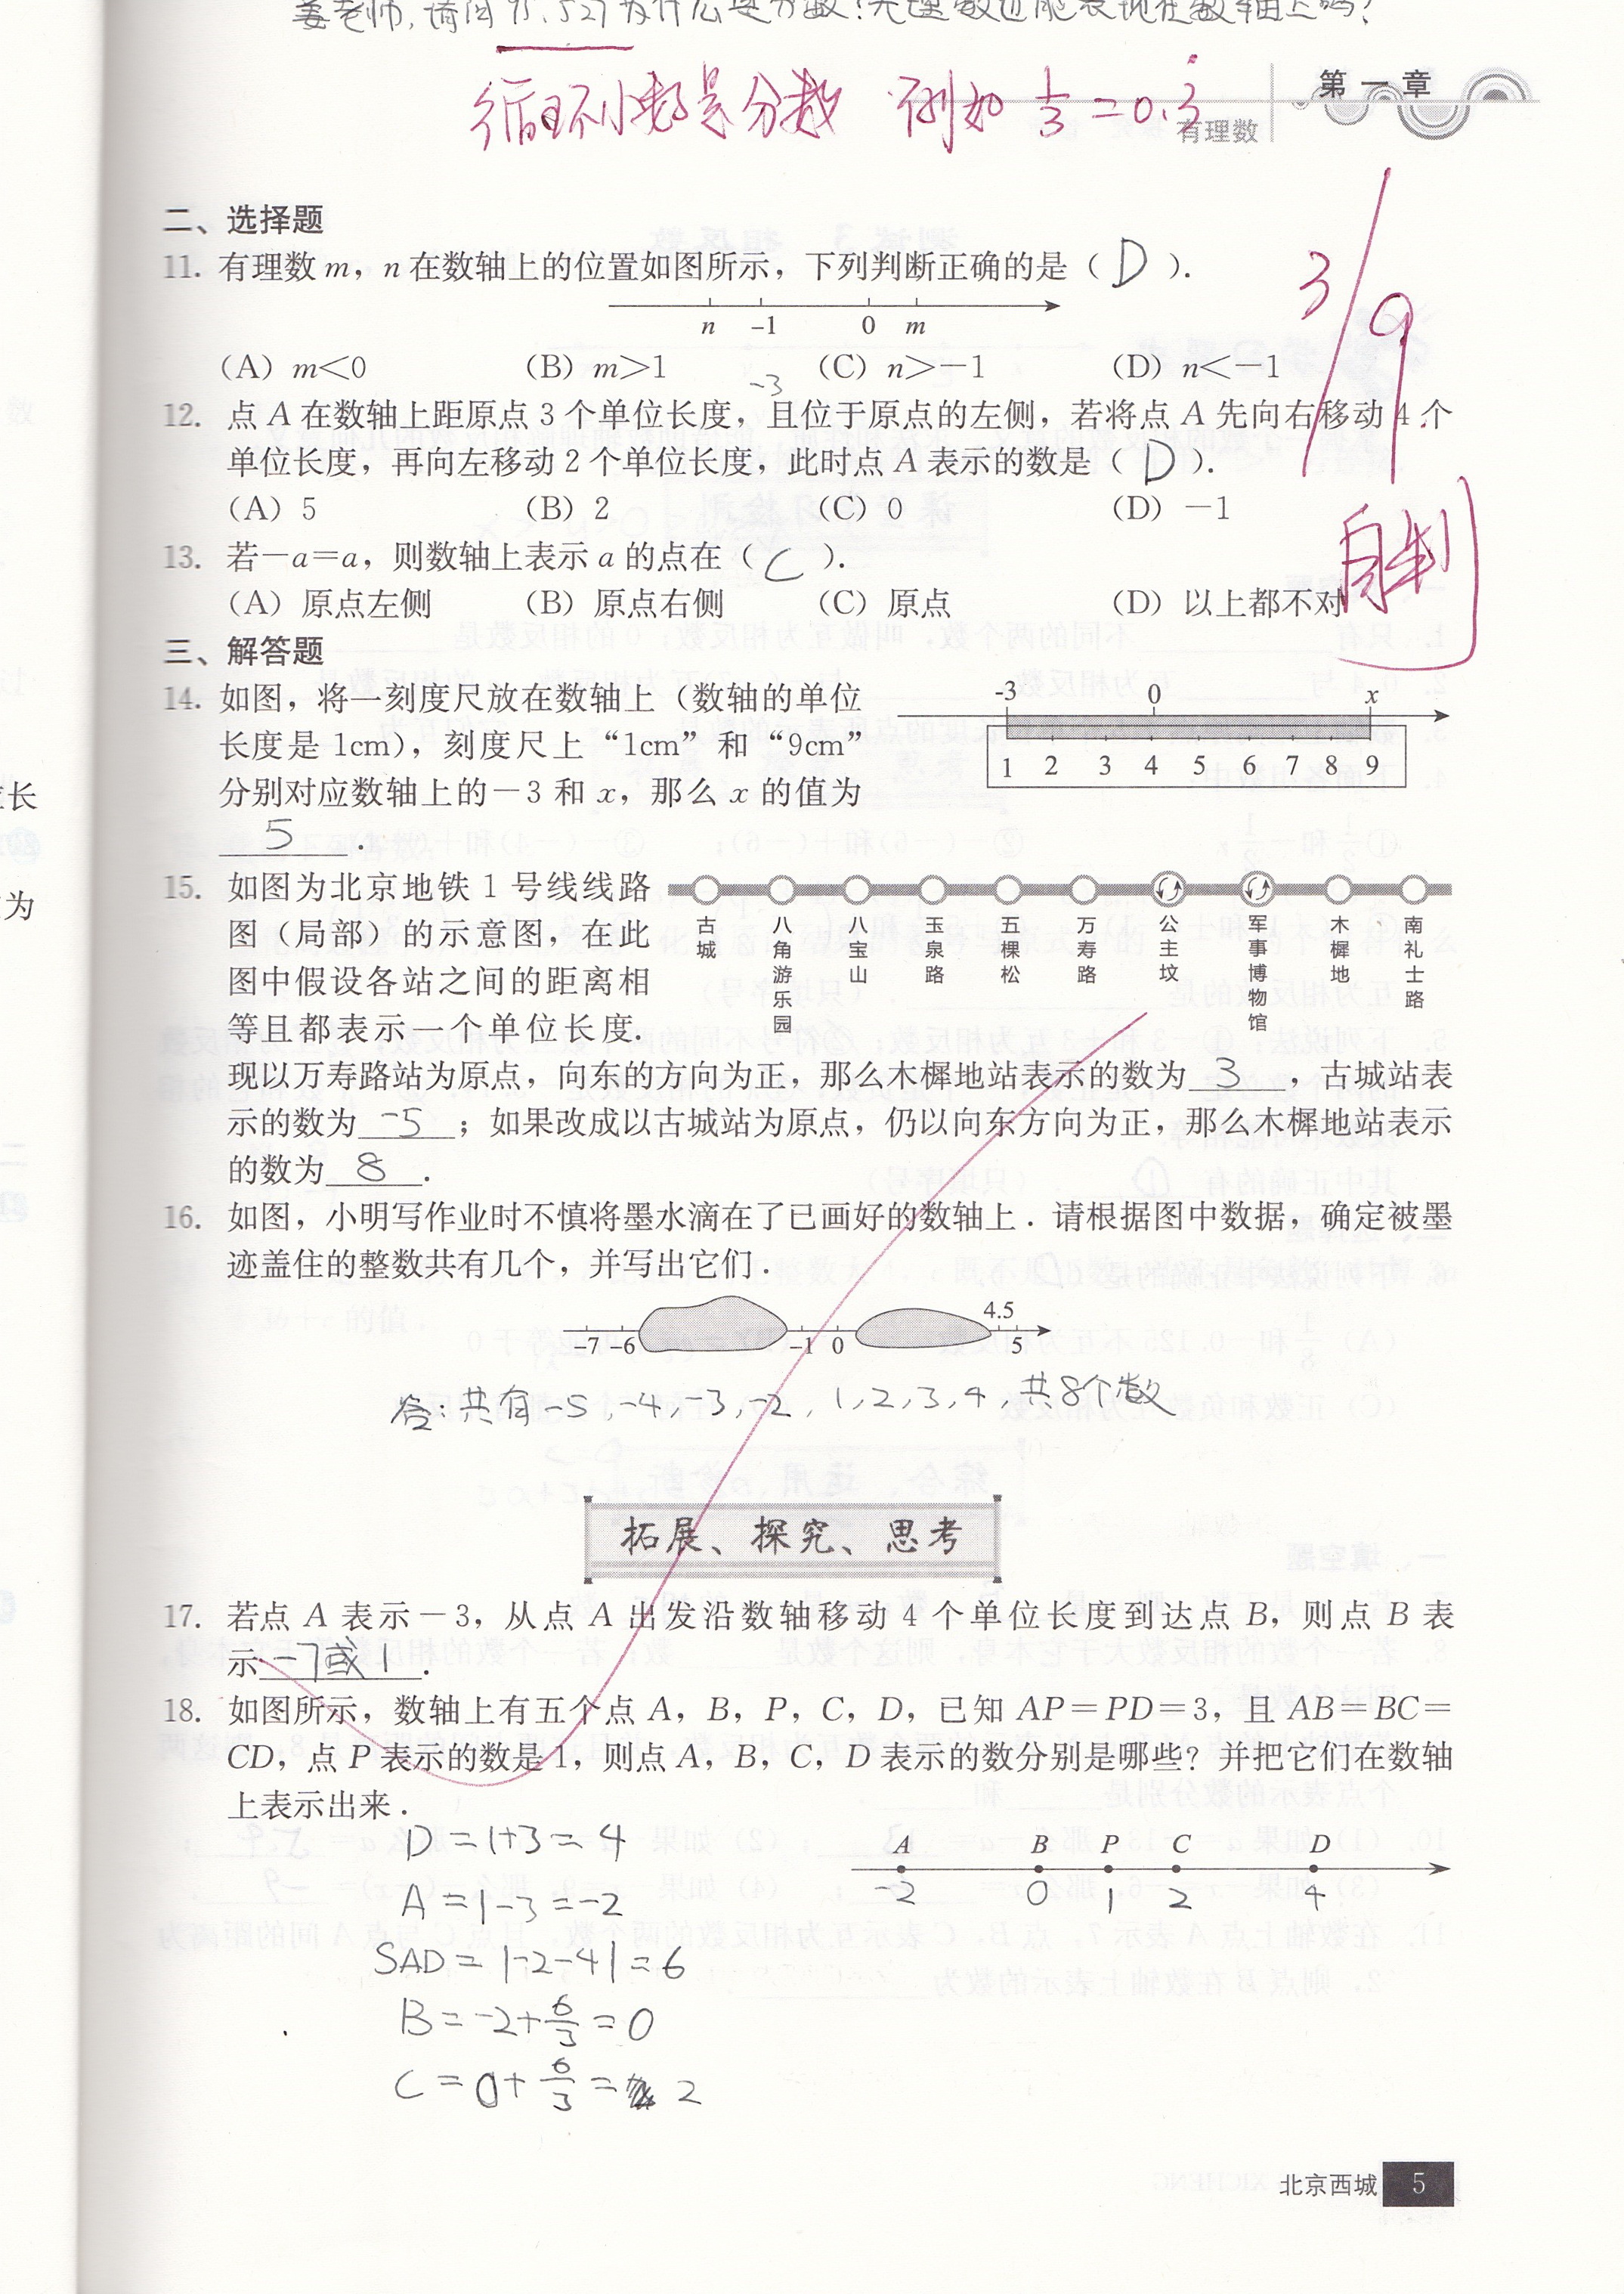 循环小数是分数 例如 1/3 = 0.3̇
第一章
有理数
3/9
自制
二、选择题
11. 有理数 m，n 在数轴上的位置如图所示，下列判断正确的是（ D ）.
n -1 0 m
（A）m<0 （B）m>1 （C）n>-1 （D）n<-1
-3
12. 点 A 在数轴上距原点 3 个单位长度，且位于原点的左侧，若将点 A 先向右移动 4 个
单位长度，再向左移动 2 个单位长度，此时点 A 表示的数是（ D ）.
（A）5 （B）2 （C）0 （D）-1
13. 若-a=a，则数轴上表示 a 的点在（ C ）.
（A）原点左侧 （B）原点右侧 （C）原点 （D）以上都不对
三、解答题
14. 如图，将一刻度尺放在数轴上（数轴的单位
长度是 1cm），刻度尺上“1cm”和“9cm”
分别对应数轴上的-3 和 x，那么 x 的值为
5 .
-3 0 x
1 2 3 4 5 6 7 8 9
15. 如图为北京地铁 1 号线线路
图（局部）的示意图，在此
图中假设各站之间的距离相
等且都表示一个单位长度.
古城 八角游乐园 八宝山 玉泉路 五棵松 万寿路 公主坟 军事博物馆 木樨地 南礼士路
现以万寿路站为原点，向东的方向为正，那么木樨地站表示的数为 3 ，古城站表
示的数为 -5 ；如果改成以古城站为原点，仍以向东方向为正，那么木樨地站表示
的数为 8 .
16. 如图，小明写作业时不慎将墨水滴在了已画好的数轴上．请根据图中数据，确定被墨
迹盖住的整数共有几个，并写出它们．
4.5
-7 -6 -1 0 5
答：共有 -5，-4，-3，-2，1，2，3，4，共8个数
拓展、探究、思考
17. 若点 A 表示-3，从点 A 出发沿数轴移动 4 个单位长度到达点 B，则点 B 表
示 -7或1 .
18. 如图所示，数轴上有五个点 A，B，P，C，D，已知 AP=PD=3，且 AB=BC=
CD，点 P 表示的数是 1，则点 A，B，C，D 表示的数分别是哪些？并把它们在数轴
上表示出来．
A B P C D
-2 0 1 2 4
D = 1+3 = 4
A = 1-3 = -2
SAD = |-2-4| = 6
B = -2+6/3 = 0
C = 0+6/3 = 2
北京西城 5